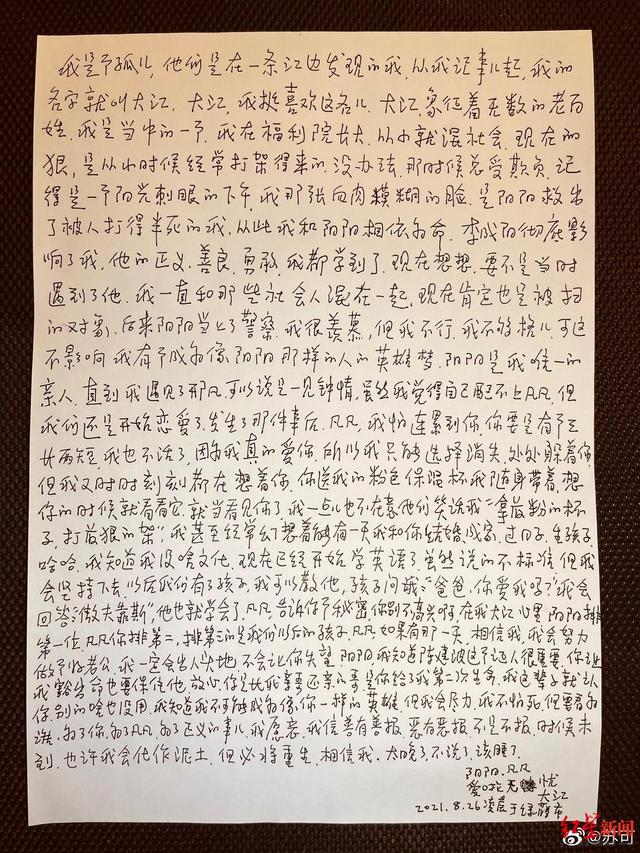 我是个孤儿，他们是在一条江边发现的我，从我记事儿起，我的
名字就叫大江，大江，我挺喜欢这名儿，大江，象征着无数的老百
姓，我是当中的一个，我在福利院长大，从小就混社会，现在的
狠，是从小时候经常打架得来的，没办法，那时候总受欺负，记
得是一个阳光刺眼的下午，我那张血肉模糊的脸，是阳阳救出
了被人打得半死的我，从此我和阳阳相依为命，李成阳彻底影
响了我，他的正义、善良、勇敢，我都学到了，现在想想，要不是当时
遇到了他，我一直和那些社会人混在一起，现在肯定也是被扫
的对象，后来阳阳当上了警察，我很羡慕，但我不行，我不够格儿，可这
不影响我有个成为像阳阳那样的人的英雄梦，阳阳是我唯一的
亲人，直到我遇见了那凡，可以说是一见钟情，虽然我觉得自己配不上凡凡，但
我们还是开始恋爱了，发生了那件事后，凡凡，我怕连累到你，你要是有个三
长两短，我也不活了，因为我真的爱你，所以我只能选择消失，处处躲着你，
但我又时时刻刻都在想着你，你送我的粉色保温杯我随身带着，想
你的时候就看看它，就当看见你了，我一点儿也不在意他们笑话我"拿最粉的杯
子，打最狠的架"，我甚至经常幻想着能有一天我和你结婚，成家，过日子，生孩子，
哈哈，我知道我没啥文化，现在已经开始学英语了，虽然说的不标准，但我
会坚持下去，以后我们有了孩子，我可以教他，孩子问我："爸爸，你爱我吗？"我会
回答："做夫靠斯"，他也就学会了，凡凡，告诉你个秘密，你别不高兴呀，在我大江心里阳阳排
第一位，凡凡你排第二，排第三的是我们以后的孩子，凡凡，如果有那一天，相信我，我会努力
做个好老公，我一定会出人头地，不会让你失望，阳阳，我知道陈建波这个证人很重要，你让
我豁出命也要保住他，放心，你是比我亲哥还亲的哥，是你给了我第二次生命，我这辈子就认
你，别的啥也没用，我知道我不能成为像你一样的英雄，但我会尽力，我不怕死，但要看为
谁，为了你，为了凡凡，为了正义的事儿，我愿意，我信善有善报，恶有恶报，不是不报，时候未
到，也许我会化作泥土，但必将重生，相信我，太晚了，不说了，该睡了
阳阳，凡凡
爱吃无忧
大江
2021.8.26凌晨于绿藤市
红星新闻
@苏可